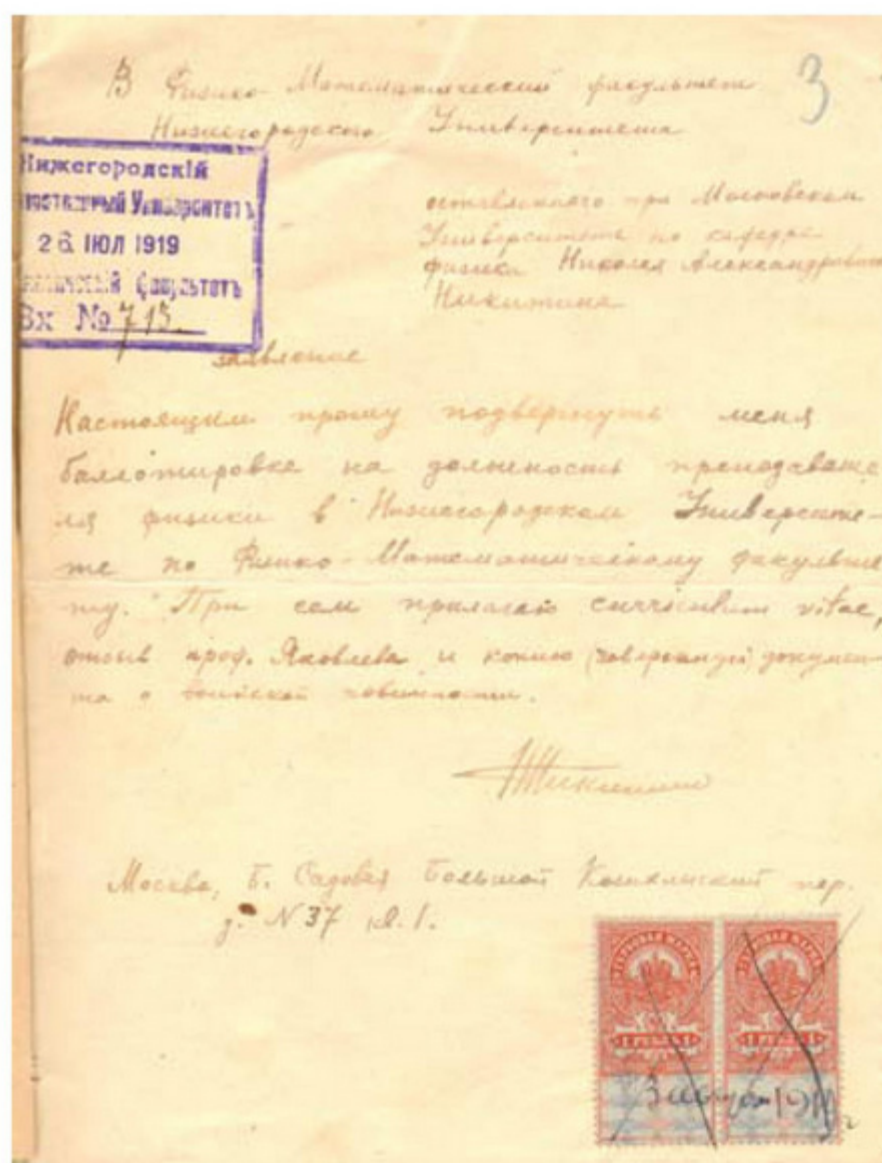 3
В Физико-Математический факультет
Нижегородского Университета
Нижегородскій
Университетъ
26 ІЮЛ 1919
Факультетъ
Вх № 713.
оставленного при Московском
Университете по кафедре
физики Николая Александровича
Никитина
заявление
Настоящим прошу подвергнуть меня
баллотировке на должность преподавате
ля физики в Нижегородском Университе-
те по Физико-Математическому факульте
ту. При сем прилагаю curriculum vitae,
отзыв проф. Яковлева и копию (заверенную) докумен-
та о воинской повинности.
ННикитин
Москва, Б. Садовая Большой пер.
д. N 37 кв. 1.
ГЕРБОВАЯ МАРКА
ГЕРБОВАЯ МАРКА
1 РУБЛЬ 1
1 РУБЛЬ 1